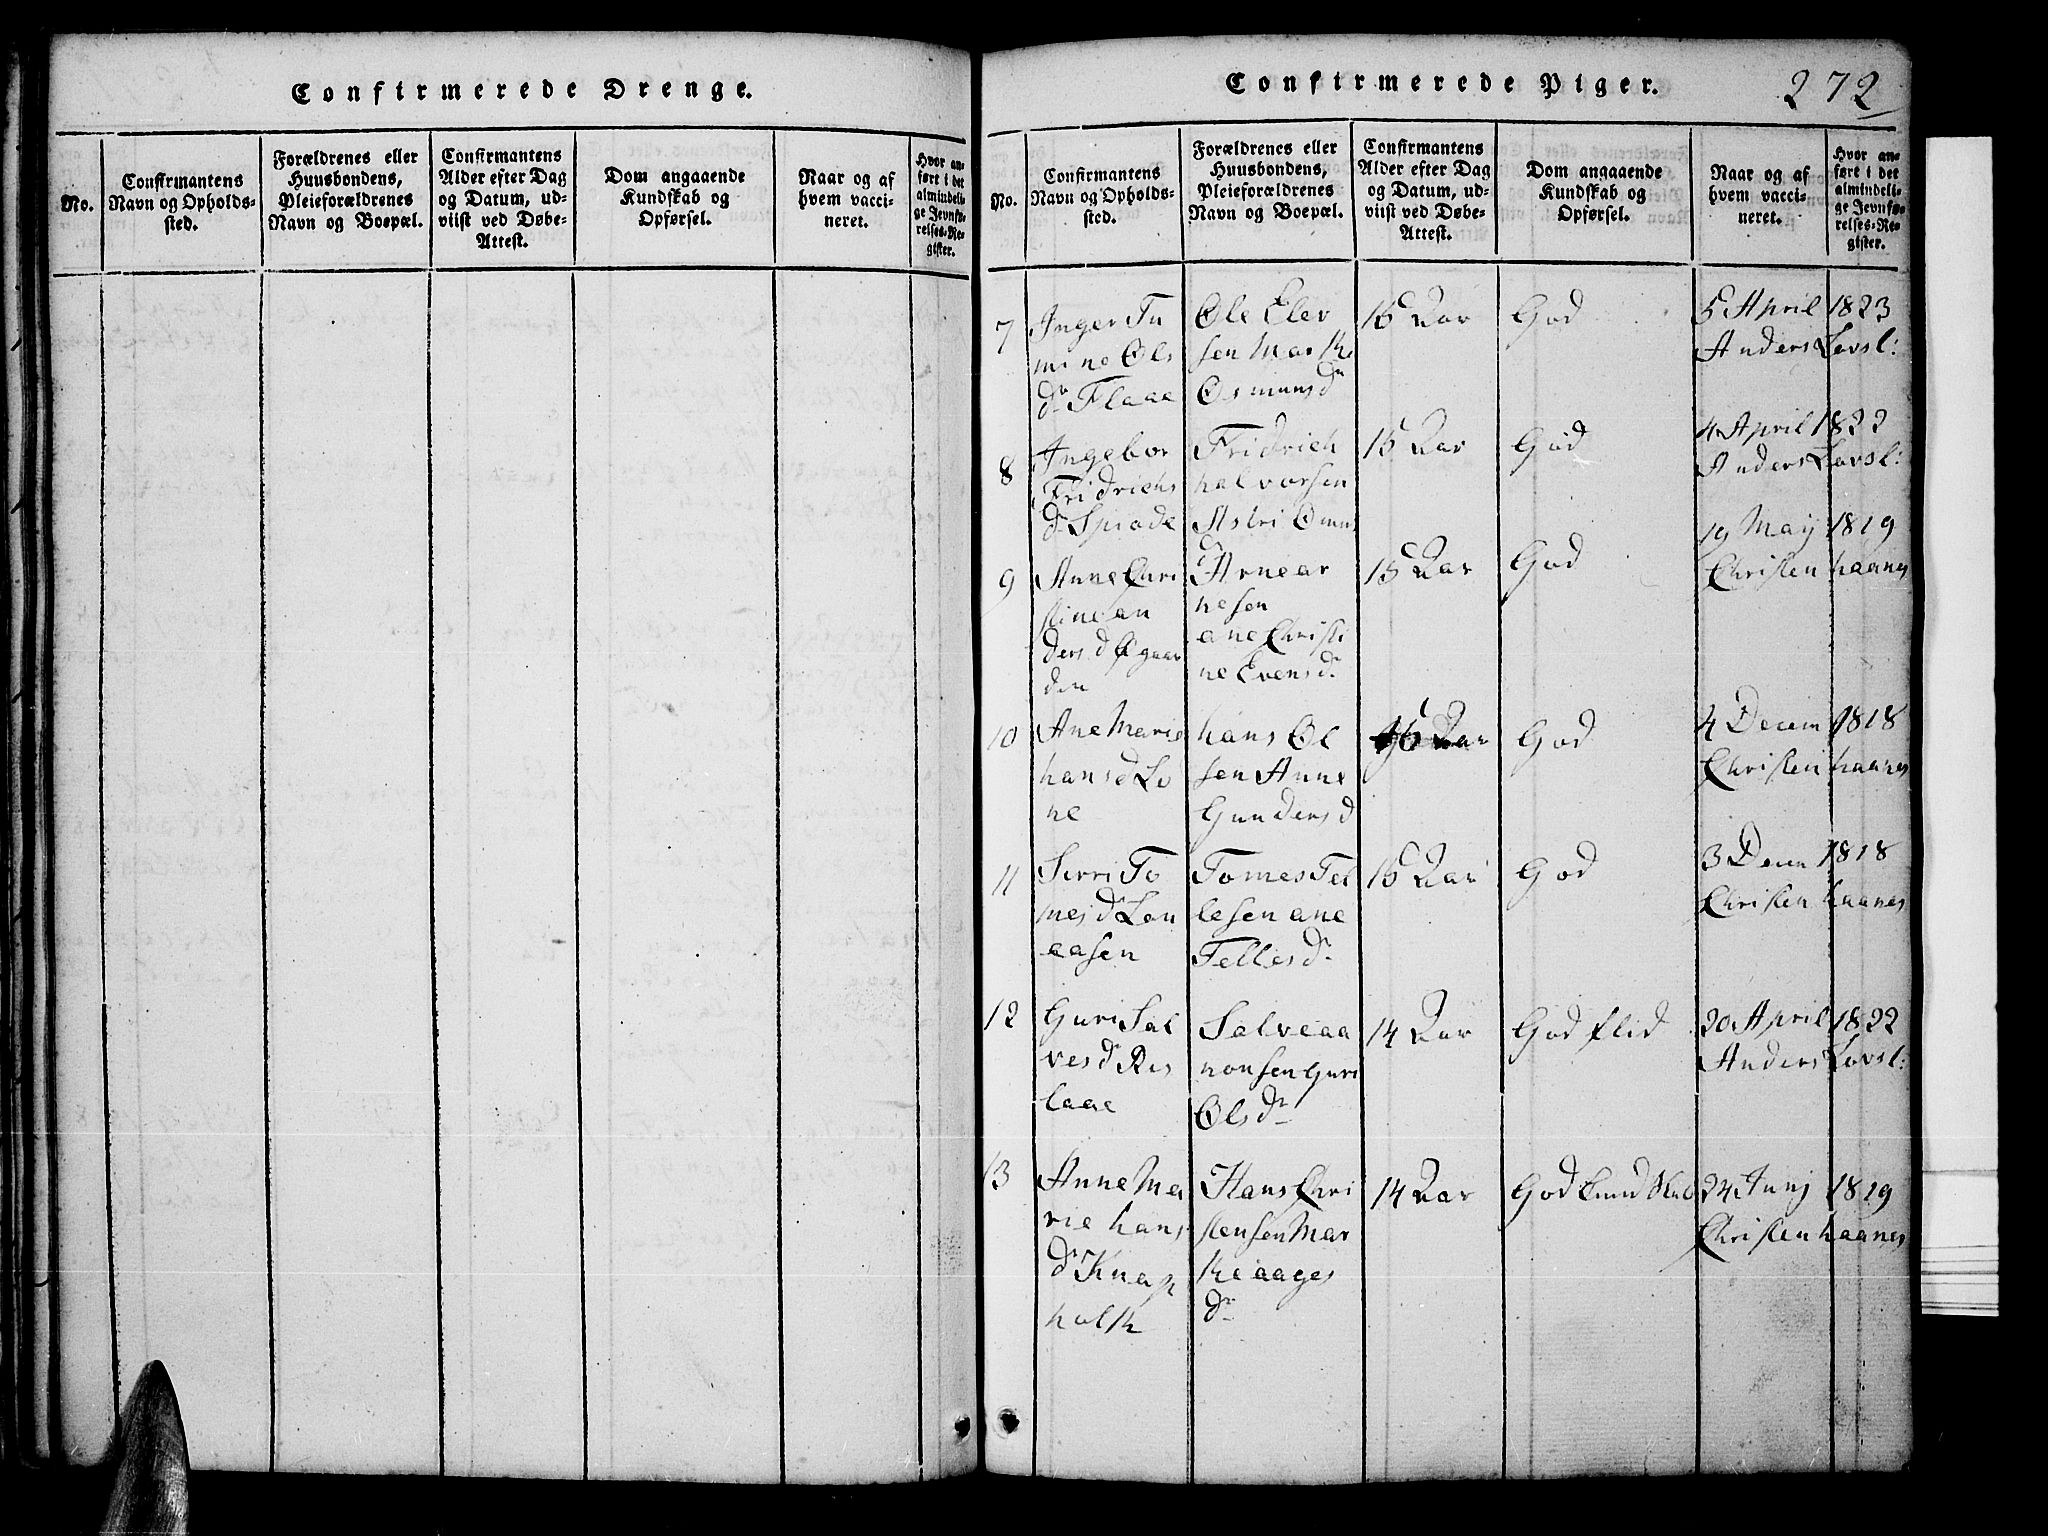 Confirmerede Drenge.
No.
Confirmantens
Navn og Opholds-
sted.
Forældrenes eller
Huusbondens,
Pleieforældrenes
Navn og Boepæl.
Confirmantens
Alder efter Dag
og Datum, ud-
viist ved Døbe-
Attest.
Dom angaaende
Kundskab og
Opførsel.
Naar og af
hvem vacci-
neret.
Hvor an-
ført i det
almindeli-
ge Jevnfø-
relses-Re-
gister.
Confirmerede Piger.
272
No.
Confirmantens
Navn og Opholds-
sted.
Forældrenes eller
Huusbondens,
Pleieforældrenes
Navn og Boepæl.
Confirmantens
Alder efter Dag
og Datum, ud-
viist ved Døbe-
Attest.
Dom angaaende
Kundskab og
Opførsel.
Naar og af
hvem vacci-
neret.
Hvor an-
ført i det
almindeli-
ge Jevnfø-
relses-Re-
gister.
7
Inger To
mine Ols
dr Flaae
Ole Elev
sen
Osmunsdr
Aar
God
5 April 1823
Anders Lovsl:
8
Ingebor
Fridrichs
dr
Fridrich
halvorsen
Astri
15 Aar
God
4 April 1822
Anders Lovsl:
9
Anne Chri
stine an
ders d
den
Arne ar
nesen
ane Christi
ne Evensdr
15 Aar
God
19 May 1819
Christen haanes
10
Ane Marie
hansd Lo
ne
hans Ol
sen Anne
Gundersd
16 Aar
God
4 Decem 1818
Christen haanes
11
Sirri To
mesdr
aasen
Tomes Tel
lesen ane
Tellesdr
Aar
God
3 Decm 1818
Christen haanes
12
Guri Sal
vesdr Ris
laae
Salve aa
nonsen Guri
Olsdr
14 Aar
God flid
20 April 1822
Anders Lovsl:
13
Anne Ma
rie hans
dr Knap
holk
Hans Chri
stensen Mar
the aages
dr
14 Aar
God kundskab
24 Junj 1819
Christen haanes